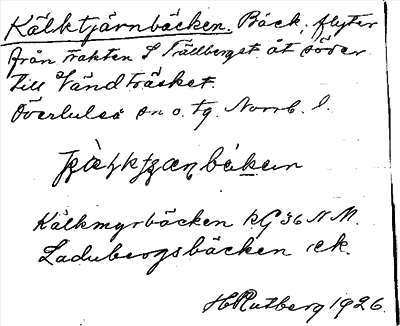 Kälktjärnbäcken. Bäck, flyter
från trakten S Fällberget åt söder
till Vändträsket.
Överluleå sn o. tg. Norrb. l.
Kälkmyrbäcken RG 36 N M.
Ladubergsbäcken ek.
H Rutberg 1926.